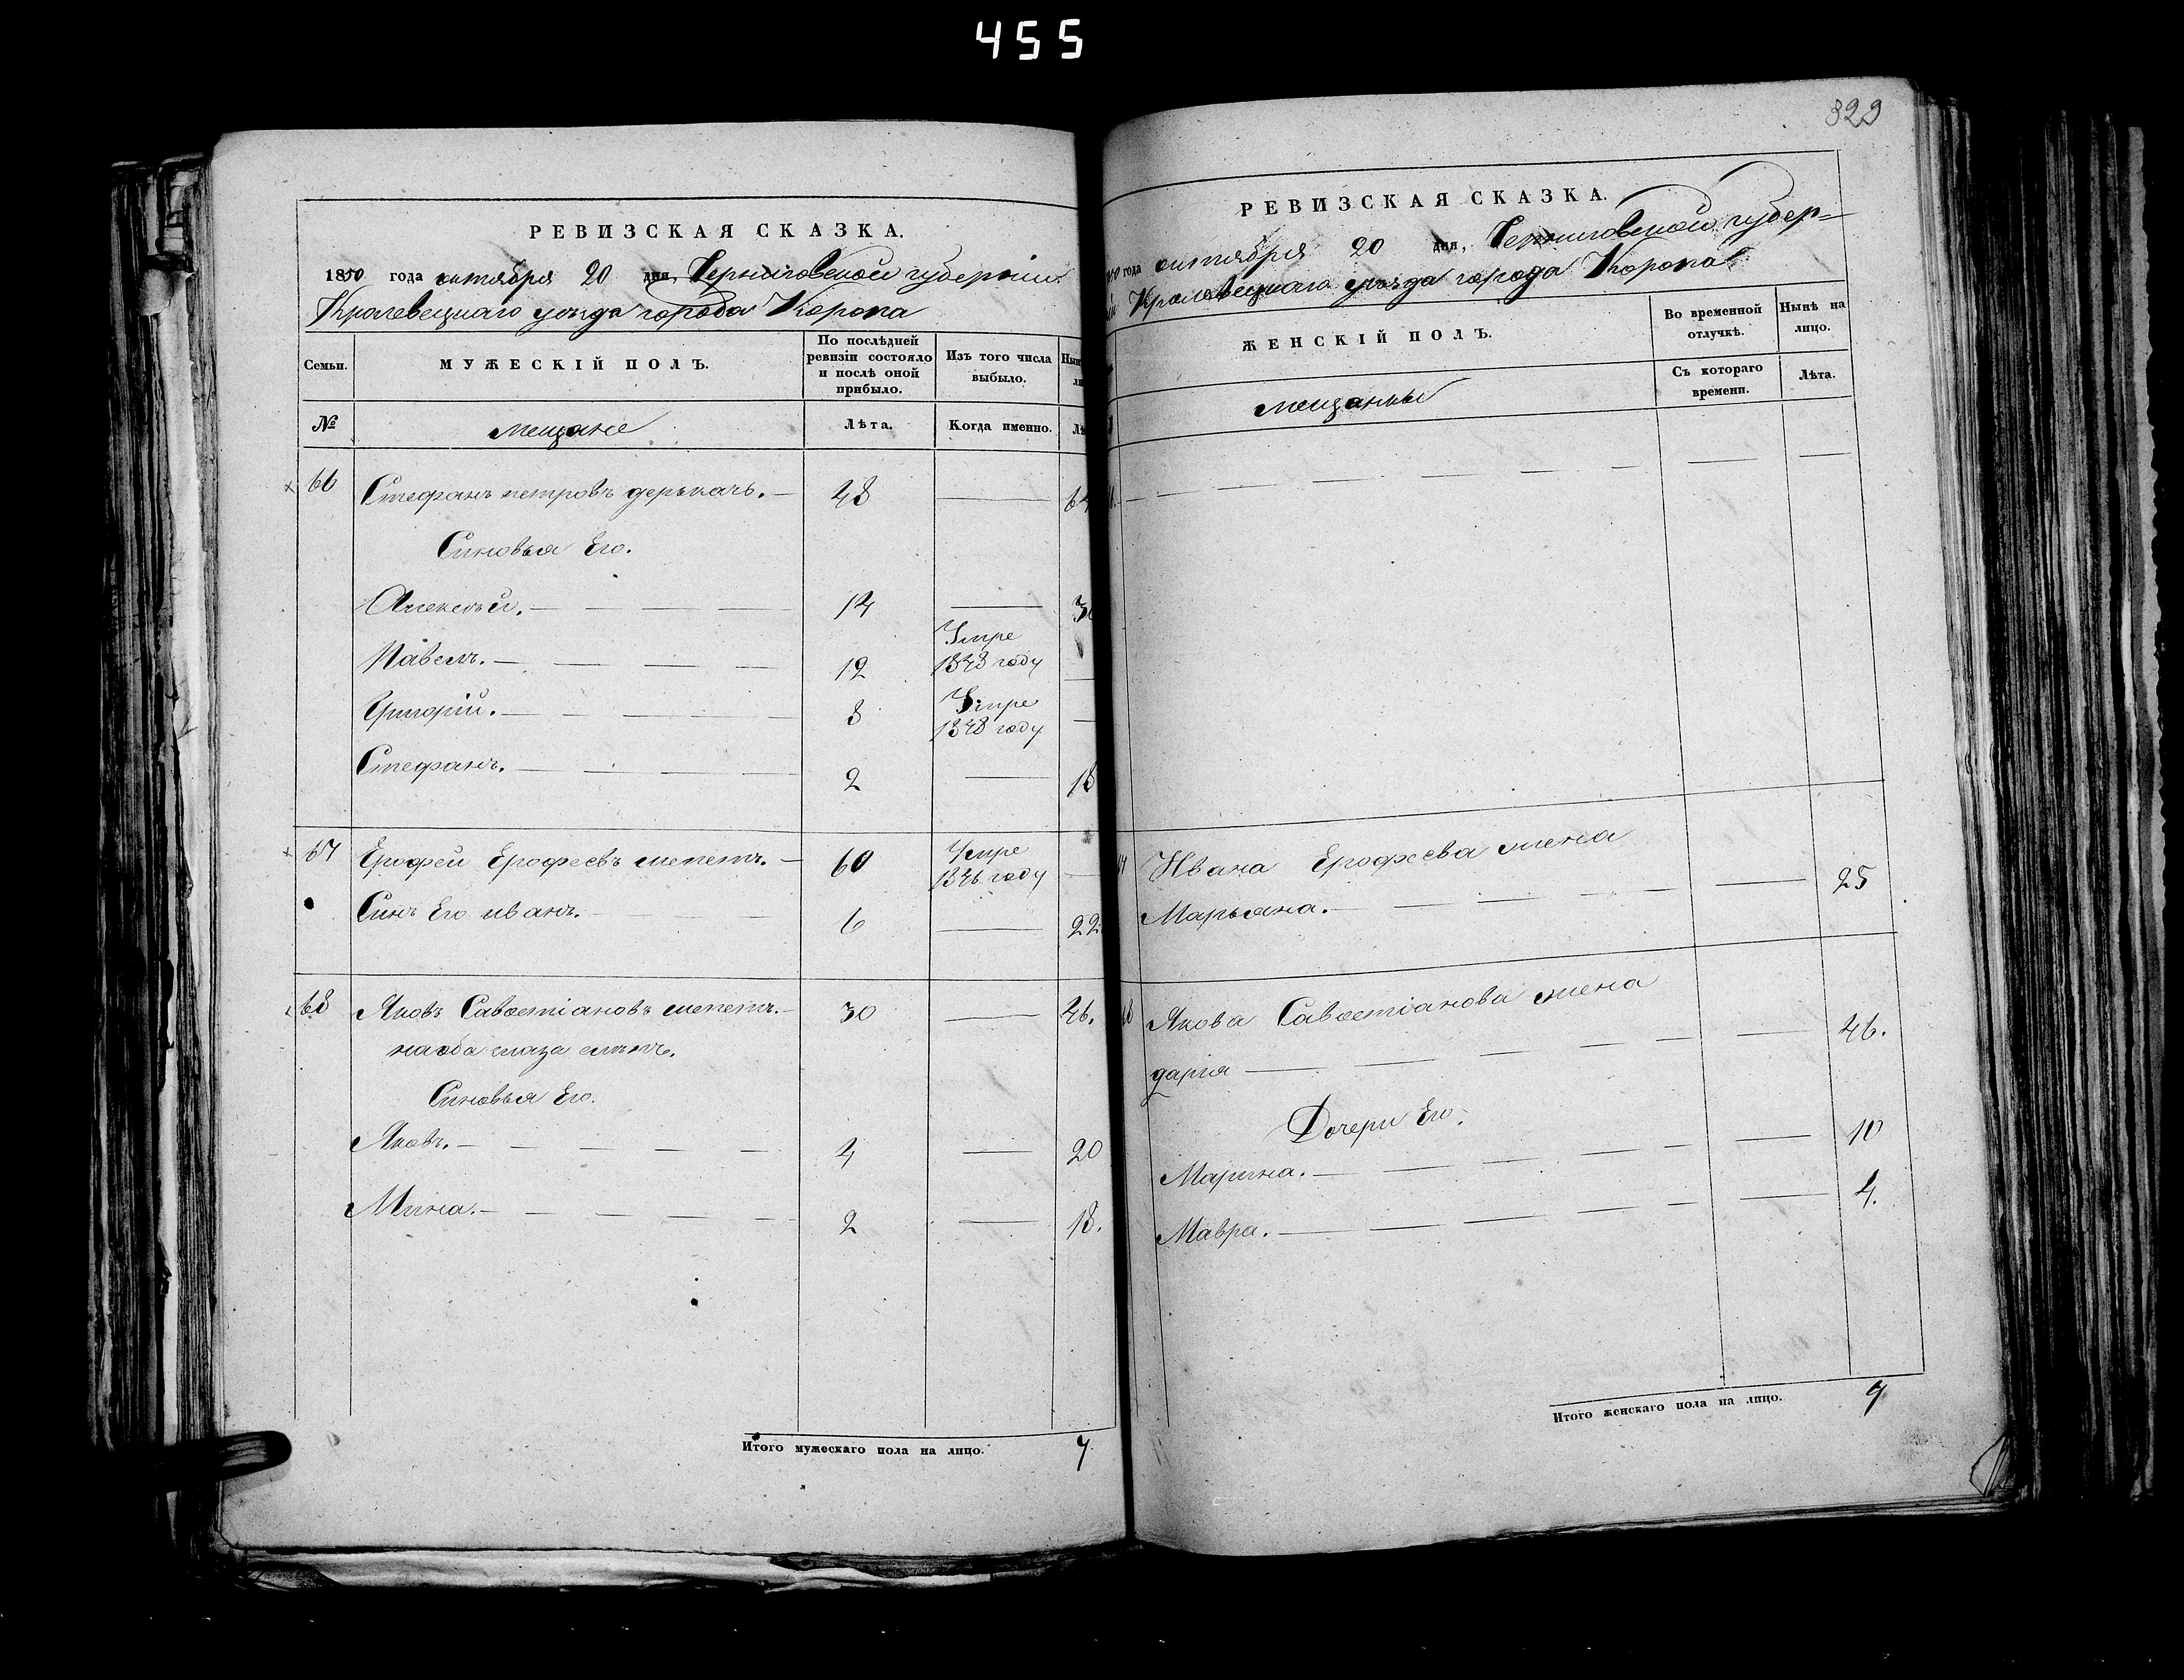 455
РЕВИЗСКАЯ СКАЗКА.
1850 года октября 20 дня, Черниговской губерніи
Кролевецкаго уѣзда города Коропа
Семьи.
МУЖЕСКІЙ ПОЛЪ.
По послѣдней ревизіи состояло и послѣ оной прибыло.
Изъ того числа выбыло.
№
мещане
Лѣта.
Когда именно.
66 Стефанъ петровъ деркачь. — 48 —
Синовья Его.
Алексѣй. — 14 —
Павелъ. — 12 Умре 1848 году —
Григорій. — 8 Умре 1848 году —
Стефанъ. — 2 — 18
67 Ерофей Ерофеевъ шепетъ. — 60 Умре 1846 году —
Синъ Его иванъ. — 6 — 22
68 Яковъ Савостіановъ шепетъ. — 30 — 46.
на оба глаза слѣпъ.
Синовья Его.
Яковъ. — 4 — 20
Мина. — 2 — 18.
Итого мужескаго пола на лицо. 7
329
РЕВИЗСКАЯ СКАЗКА.
года октября 20 дня, Черниговской губер=
Кролевецкаго уѣзда города Коропа
ЖЕНСКІЙ ПОЛЪ.
Во временной отлучкѣ.
Нынѣ на лицо.
мещанки
Съ котораго времени.
Лѣта.
Ивана Ерофеева жена
Марьяна. — 25
Якова Савостіанова жена
дария — 46.
Дочери Его.
Марина. — 10
Мавра. — 4.
Итого женскаго пола на лицо.